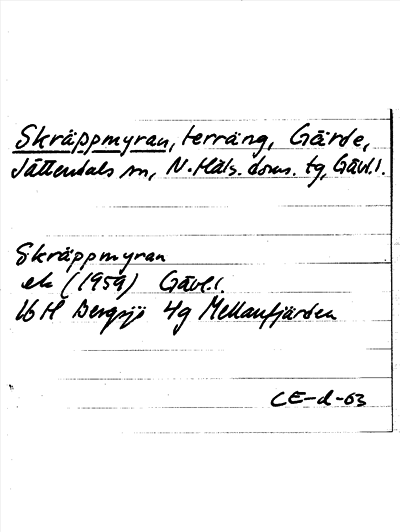 Skräppmyran, terräng, Gärde,
Jättendals sn, N. Häls. doms. tg, Gävl.l.
Skräppmyran
ek (1959) Gävl.l.
16 H Bergsjö 4g Mellanfjärden
CE-d-63